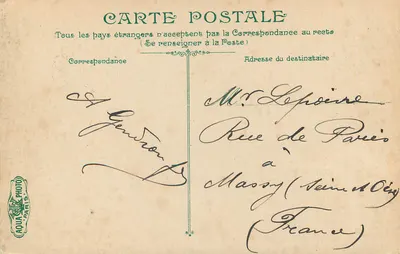 CARTE POSTALE
Tous les pays étrangers n'acceptent pas la Correspondance au recto
(Se renseigner à la Poste)
Correspondance
Adresse du destinataire
A
Mr. Lepoivre
Rue de Paris
à
Massy (Seine et Oise)
(France)
AQUA PHOTO
PARIS